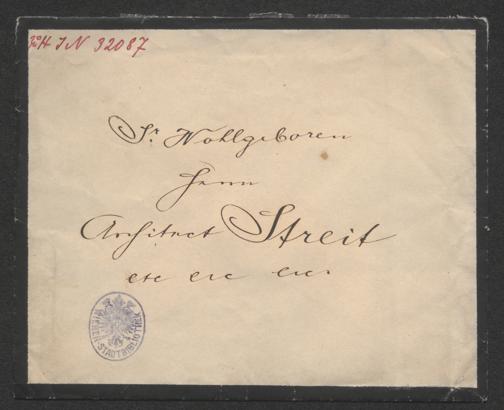 ZPH IN 32087
Sr. Wohlgeboren
Herrn
Architect Streit
etc etc etc.
WIENER STADTBIBLIOTHEK